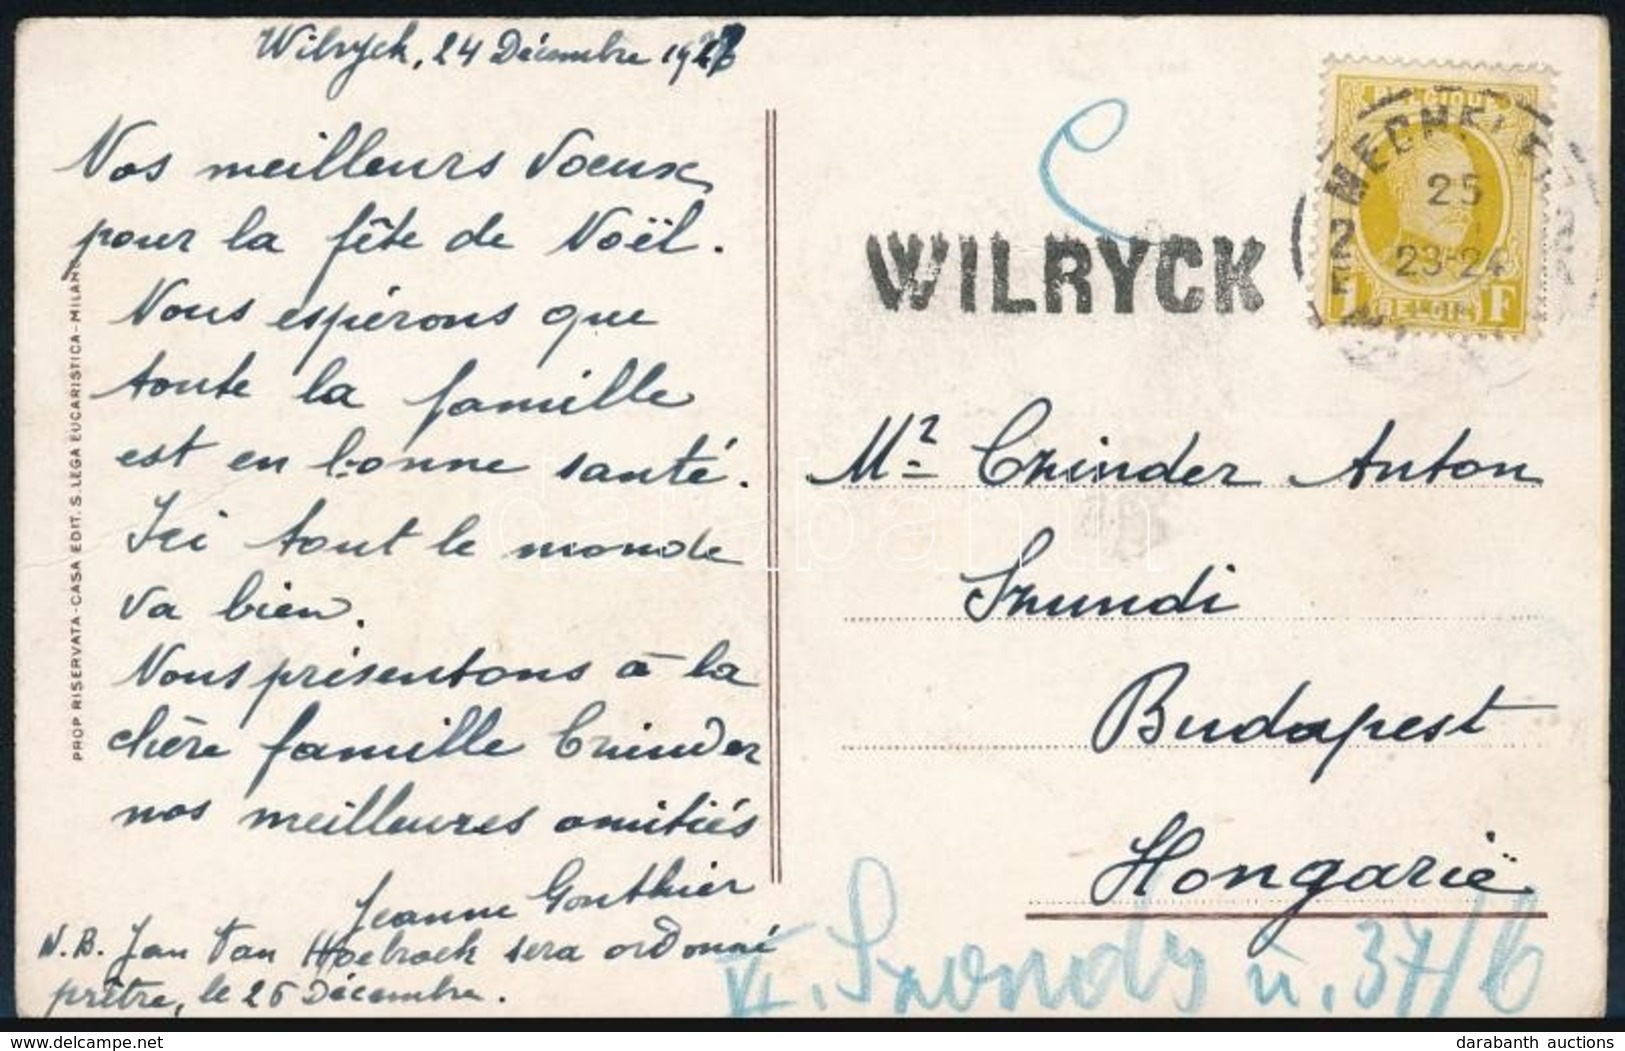 Wilryck, 24 Décembre
Nos meilleurs Voeux
pour la fête de Noël.
Nous espérons que
toute la famille
est en bonne santé.
Ici tout le monde
va bien.
Nous présentons à la
chère famille Czinder
nos meilleures amitiés
Jeanne Gonthier
N.B. Jan Van Hoelraek sera ordonné
prêtre, le 26 Décembre.
PROP RISERVATA - CASA EDIT. S. LEGA EUCARISTICA - MILANO
BELGIQUE
MECHELEN
25
23-24
2
1 BELGIË F
WILRYCK
Mr Czinder Anton
Szundi
Budapest
Hongarië
VI. Szondy u. 37/b
darabanth
darabanth auctions